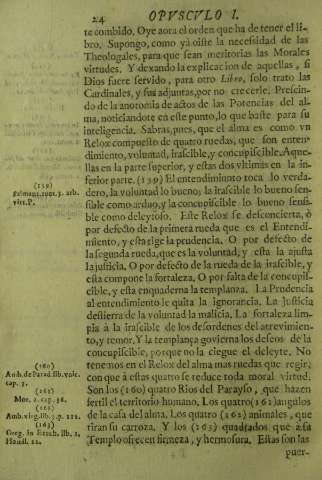 24 OPVSCVLO I.
te combido. Oye aora el orden que ha de tener el li-
bro. Supongo, como yà oiste la necessidad de las
Theologales, para que sean meritorias las Morales
virtudes. Y dexando la explicacion de aquellas, si
Dios fuere servido, para otro Libro, solo trato las
Cardinales, y sus adjuntas, por no crecerle. Prescin-
do de la anotomia de actos de las Potencias del al-
ma, noticiandote en este punto, lo que baste para su
inteligencia. Sabras, pues, que el alma es como vn
Relox compuesto de quatro ruedas, que son enten-
dimiento, voluntad, irascible, y concupiscible. Aque-
llas en la parte superior, y estas dos vltimas en la in-
ferior parte. (159) El entendimiento toca lo verda-
dero, la voluntad lo bueno; la irascible lo bueno sen-
sible como arduo, y la concupiscible lo bueno sensi-
ble como deleytoso. Este Relox se desconcierta, ò
por defecto de la primera rueda que es el Entendi-
miento, y esta rige la prudencia. O por defecto de
la segunda rueda, que es la voluntad, y esta la ajusta
la justicia, O por defecto de la rueda de la irascible, y
esta compone la fortaleza, O por falta de la concupis-
cible, y esta enquaderna la templanza. La Prudencia
al entendimiento le quita la ignorancia. La Justicia
destierra de la voluntad la malicia. La fortaleza lim-
pia à la irascible de los desordenes del atrevimien-
to, y temor. Y la templança govierna los deseos de la
concupiscible, porque no la ciegue el deleyte. No
tenemos en el Relox del alma mas ruedas que regir;
con que à estas quatro se reduce toda moral virtud.
Son los (160) quatro Rios del Parayso, que hazen
fertil el territorio humano. Los quatro (161) angulos
de la casa del alma. Los quatro (162) animales, que
tiran su carroza. Y los (163) quadrados que à su
Templo ofrecen firmeza, y hermosura. Estas son las
puer-
(159)
vitt. P.
(160)
Amb. de Parad. lib. vnic.
cap. 3.
(161)
Mor. 2. cap. 36.
(162)
(163)
Greg. in Ezech. lib. 2.